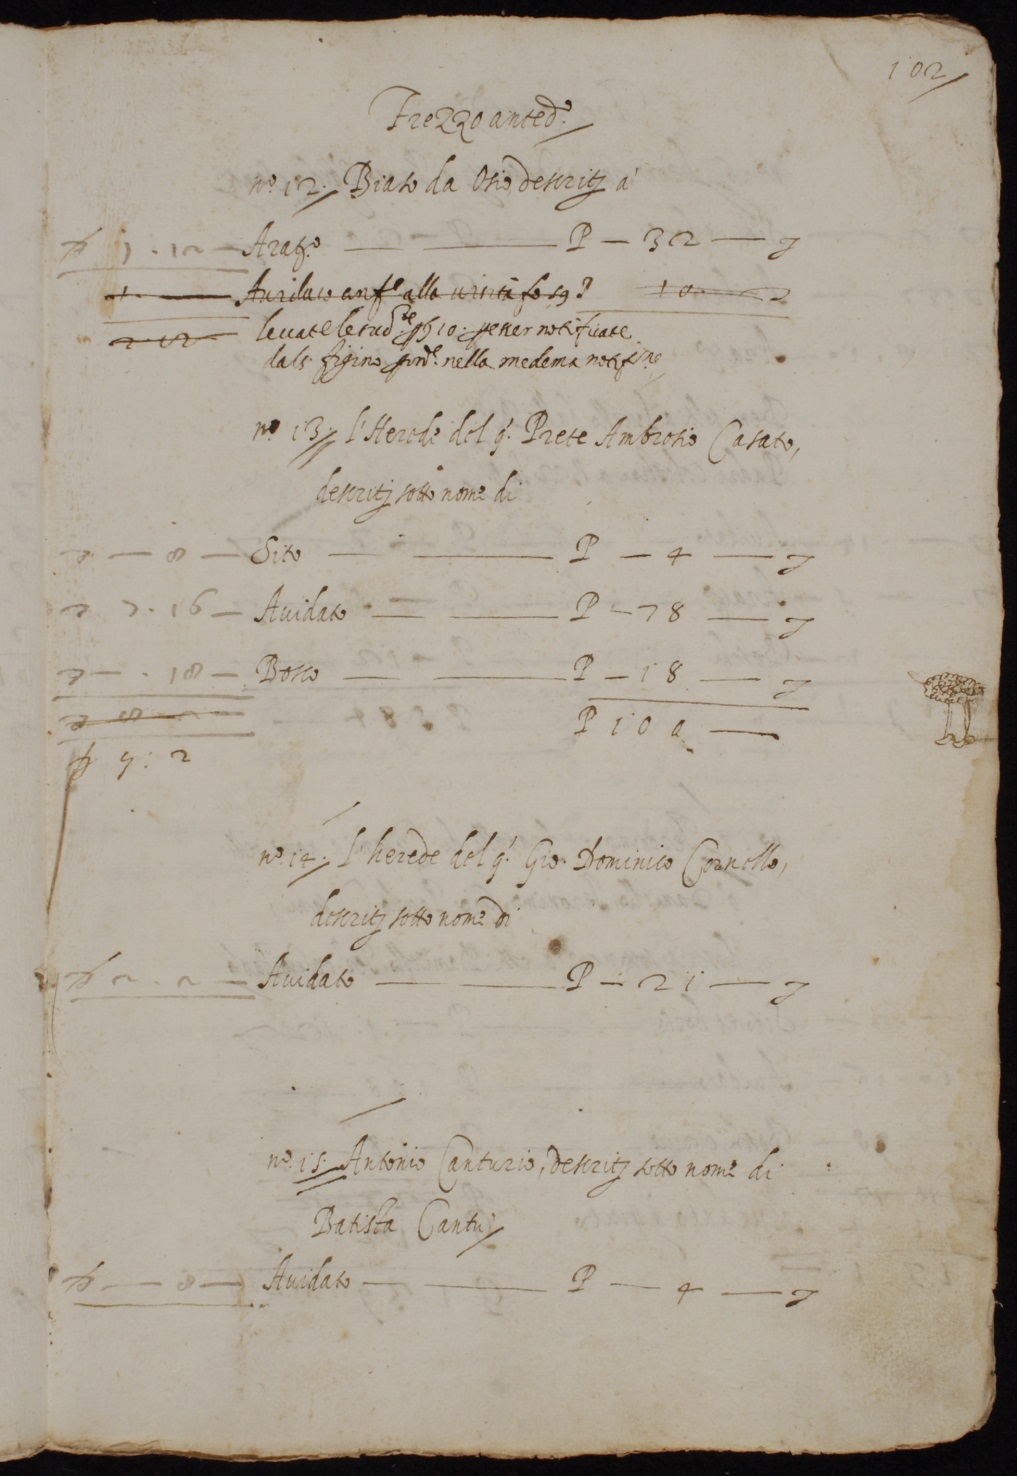 102
Trezzo anted.o
n.o 12. Biaso da Osio descritj a
1 . 12 — Arat.o — P — 32 —
1 — Avidato alla 10 —
levate le sud.te p 10: per esser notificate
dal s. figino nella medema notif.ne
n.o 13. l'Herede del q. Prete Ambrosio Casato,
descritj sotto nome di
— 8 — Sito — P — 4 —
7 . 16 — Avidato — P — 78 —
— . 18 — Bosco — P — 18 —
P 100 —
9 : 2
n.o 14. l'herede del q. Gio. Dominico Cornello,
descritj sotto nome di
2 . 2 — Avidato — P — 21 —
n.o 15. Antonio Canturio, descritj sotto nome di
Batista Cantu
— 8 — Avidato — P — 4 —